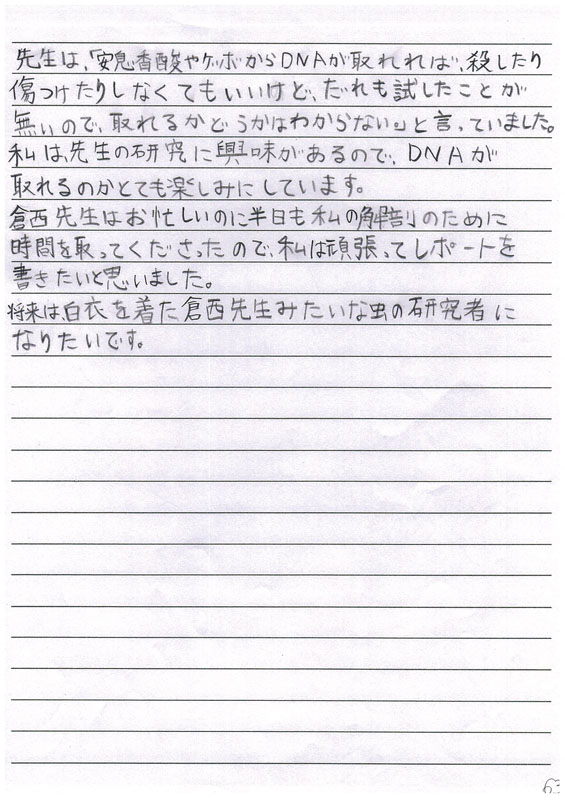 先生は、「安息香酸やゲップからDNAが取れれば、殺したり
傷つけたりしなくてもいいけど、だれも試したことが
無いので、取れるかどうかはわからない。」と言っていました。
私は、先生の研究に興味があるので、DNAが
取れるのかとても楽しみにしています。
倉西先生はお忙しいのに半日も私の解剖のために
時間を取ってくださったので、私は頑張ってレポートを
書きたいと思いました。
将来は、白衣を着た倉西先生みたいな虫の研究者に
なりたいです。
63